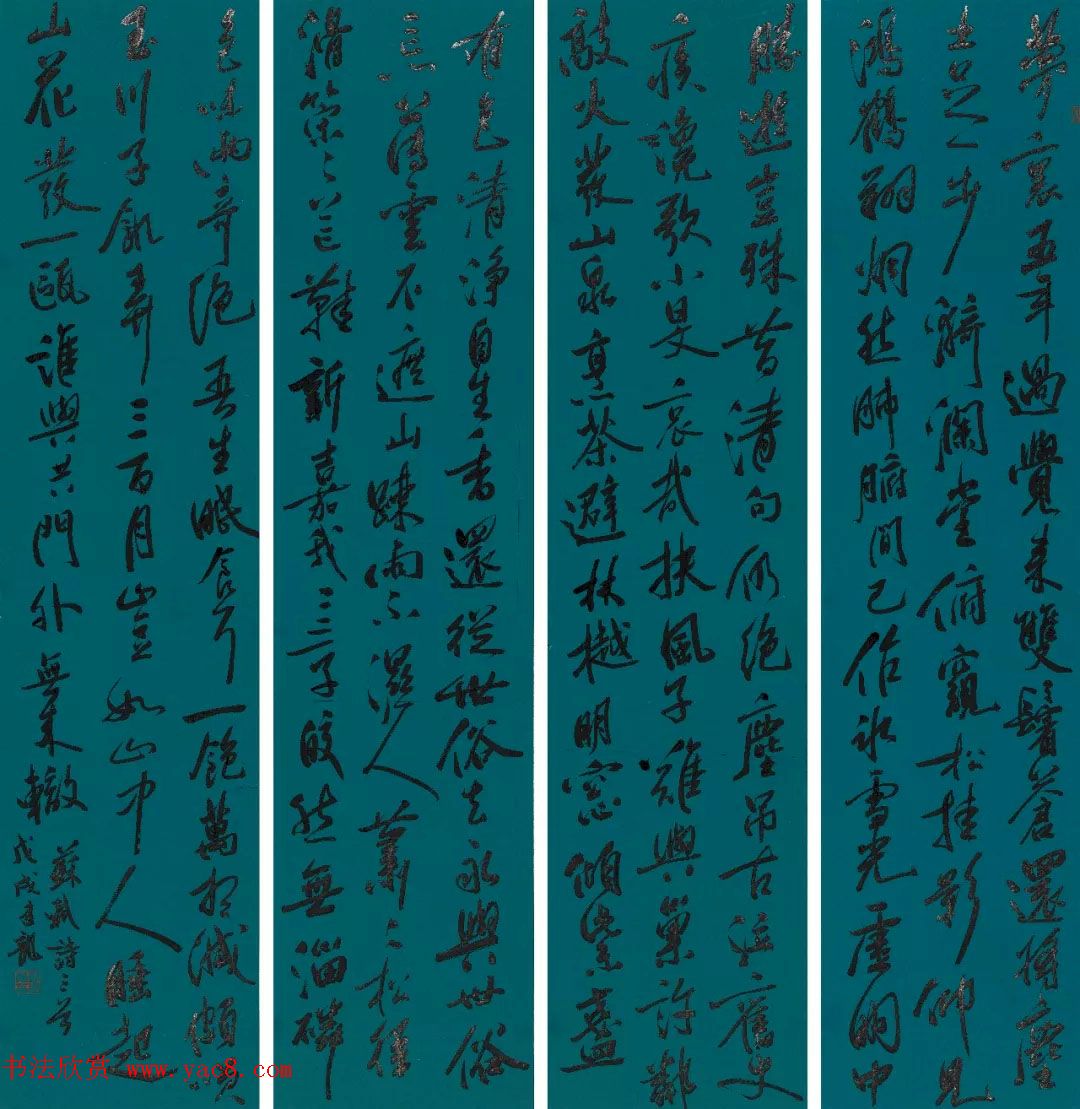 夢裏五年過覺來雙鬢蒼還將塵
土足一步漪瀾堂俯窺松桂影仰見
鴻鶴翔炯然肺腑間已作冰雪光虛明中
勝遊豈殊昔清句仍絕塵吊古泣舊史
疾讒歌小旻哀哉扶風子難與巢許鄰
敲火發山泉烹茶避林樾明窓傾紫盞
有色清淨自生香還從世俗去永與世俗
忘薄雲不遮山踈雨不濕人蕭〻松徑
滑策〻芒鞋新嘉我二三子皎然無淄磷
色味兩奇絕吾生眠食耳一飽萬想滅頗笑
玉川子飢弄三百月豈如山中人睡起
山花發一甌誰與共門外無來轍
蘇軾詩三首
戊戌
书法欣赏 www.yac8.com